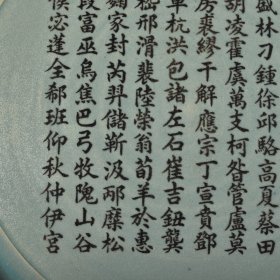 盛林刁鍾徐邱駱高夏蔡田
胡凌霍虞萬支柯昝管盧莫
房裘繆干解應宗丁宣賁鄧
單杭洪包諸左石崔吉鈕龔
嵇邢滑裴陸榮翁荀羊於惠
麴家封芮羿儲靳汲邴糜松
段富巫烏焦巴弓牧隗山谷
侯宓蓬全郗班仰秋仲伊宮